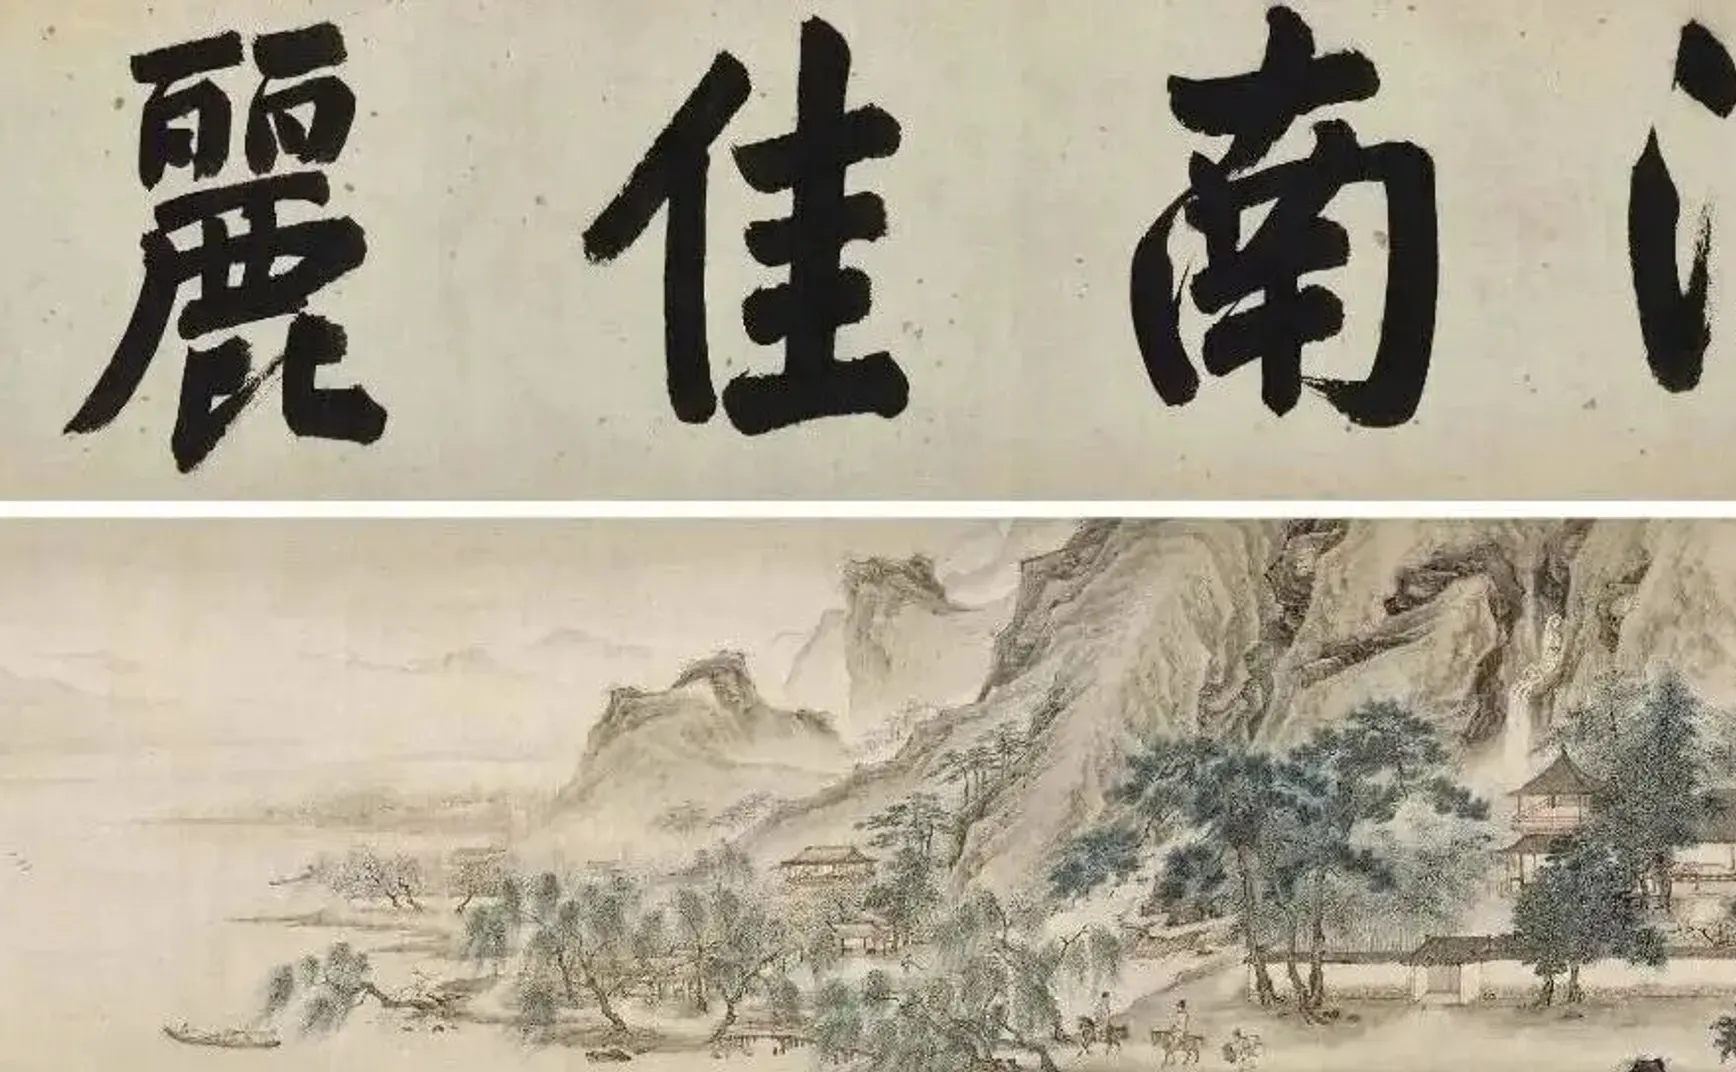 南佳麗